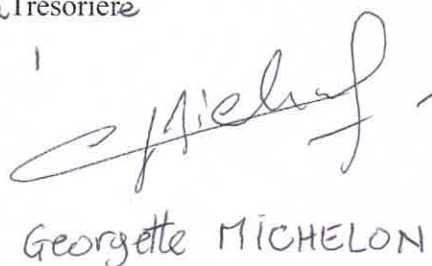 Trésorière
Georgette MICHELON